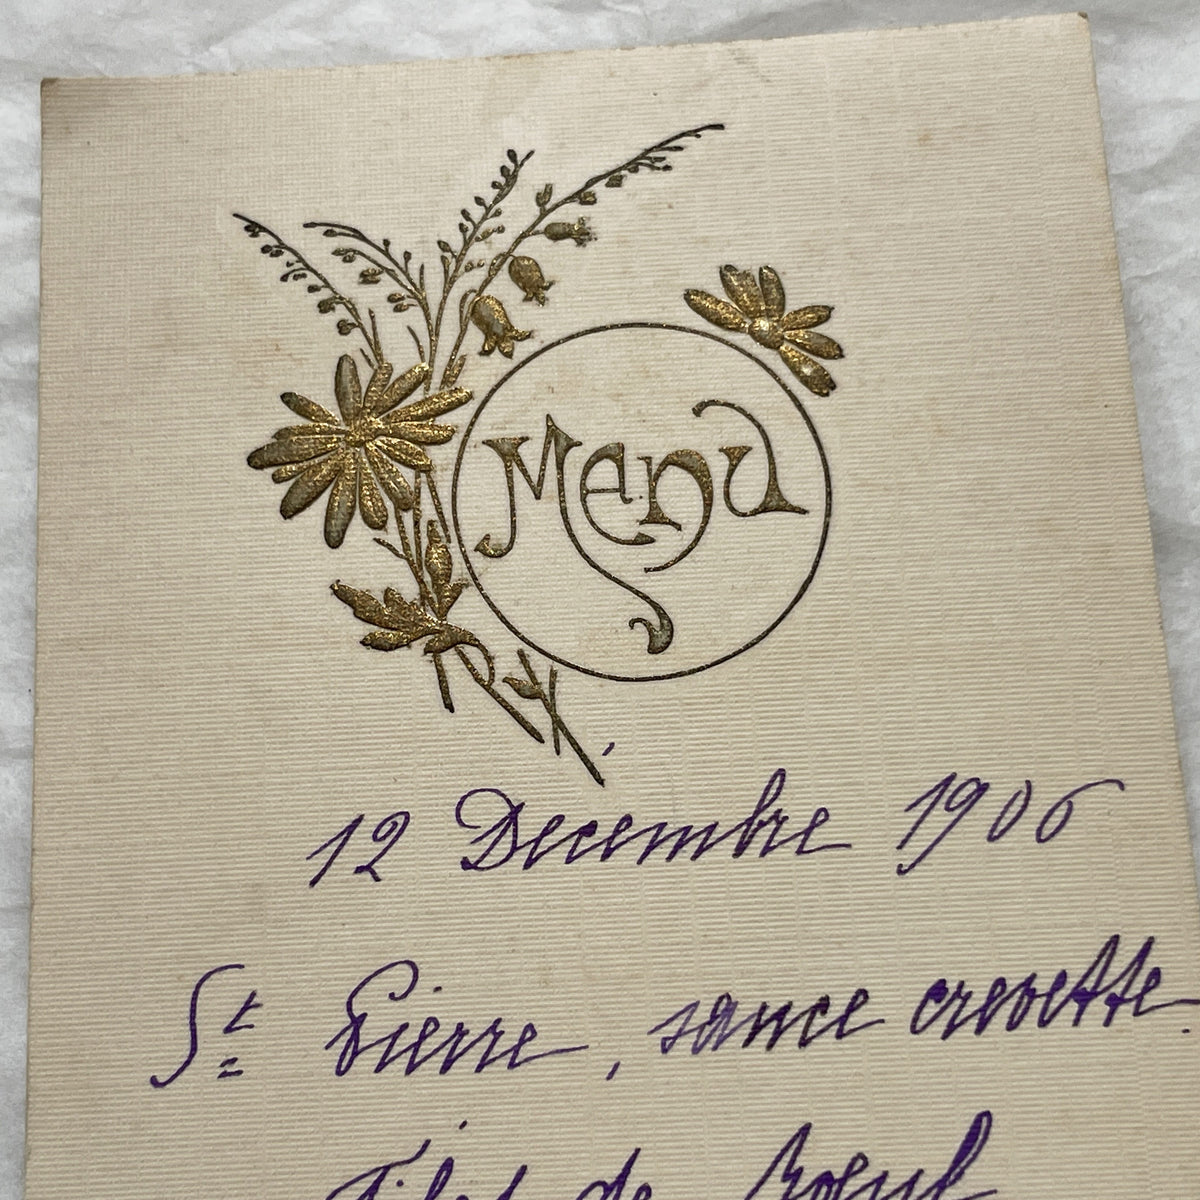 Menu
12 Décembre 1906
St Pierre, sauce crevette.
Filet de Boeuf